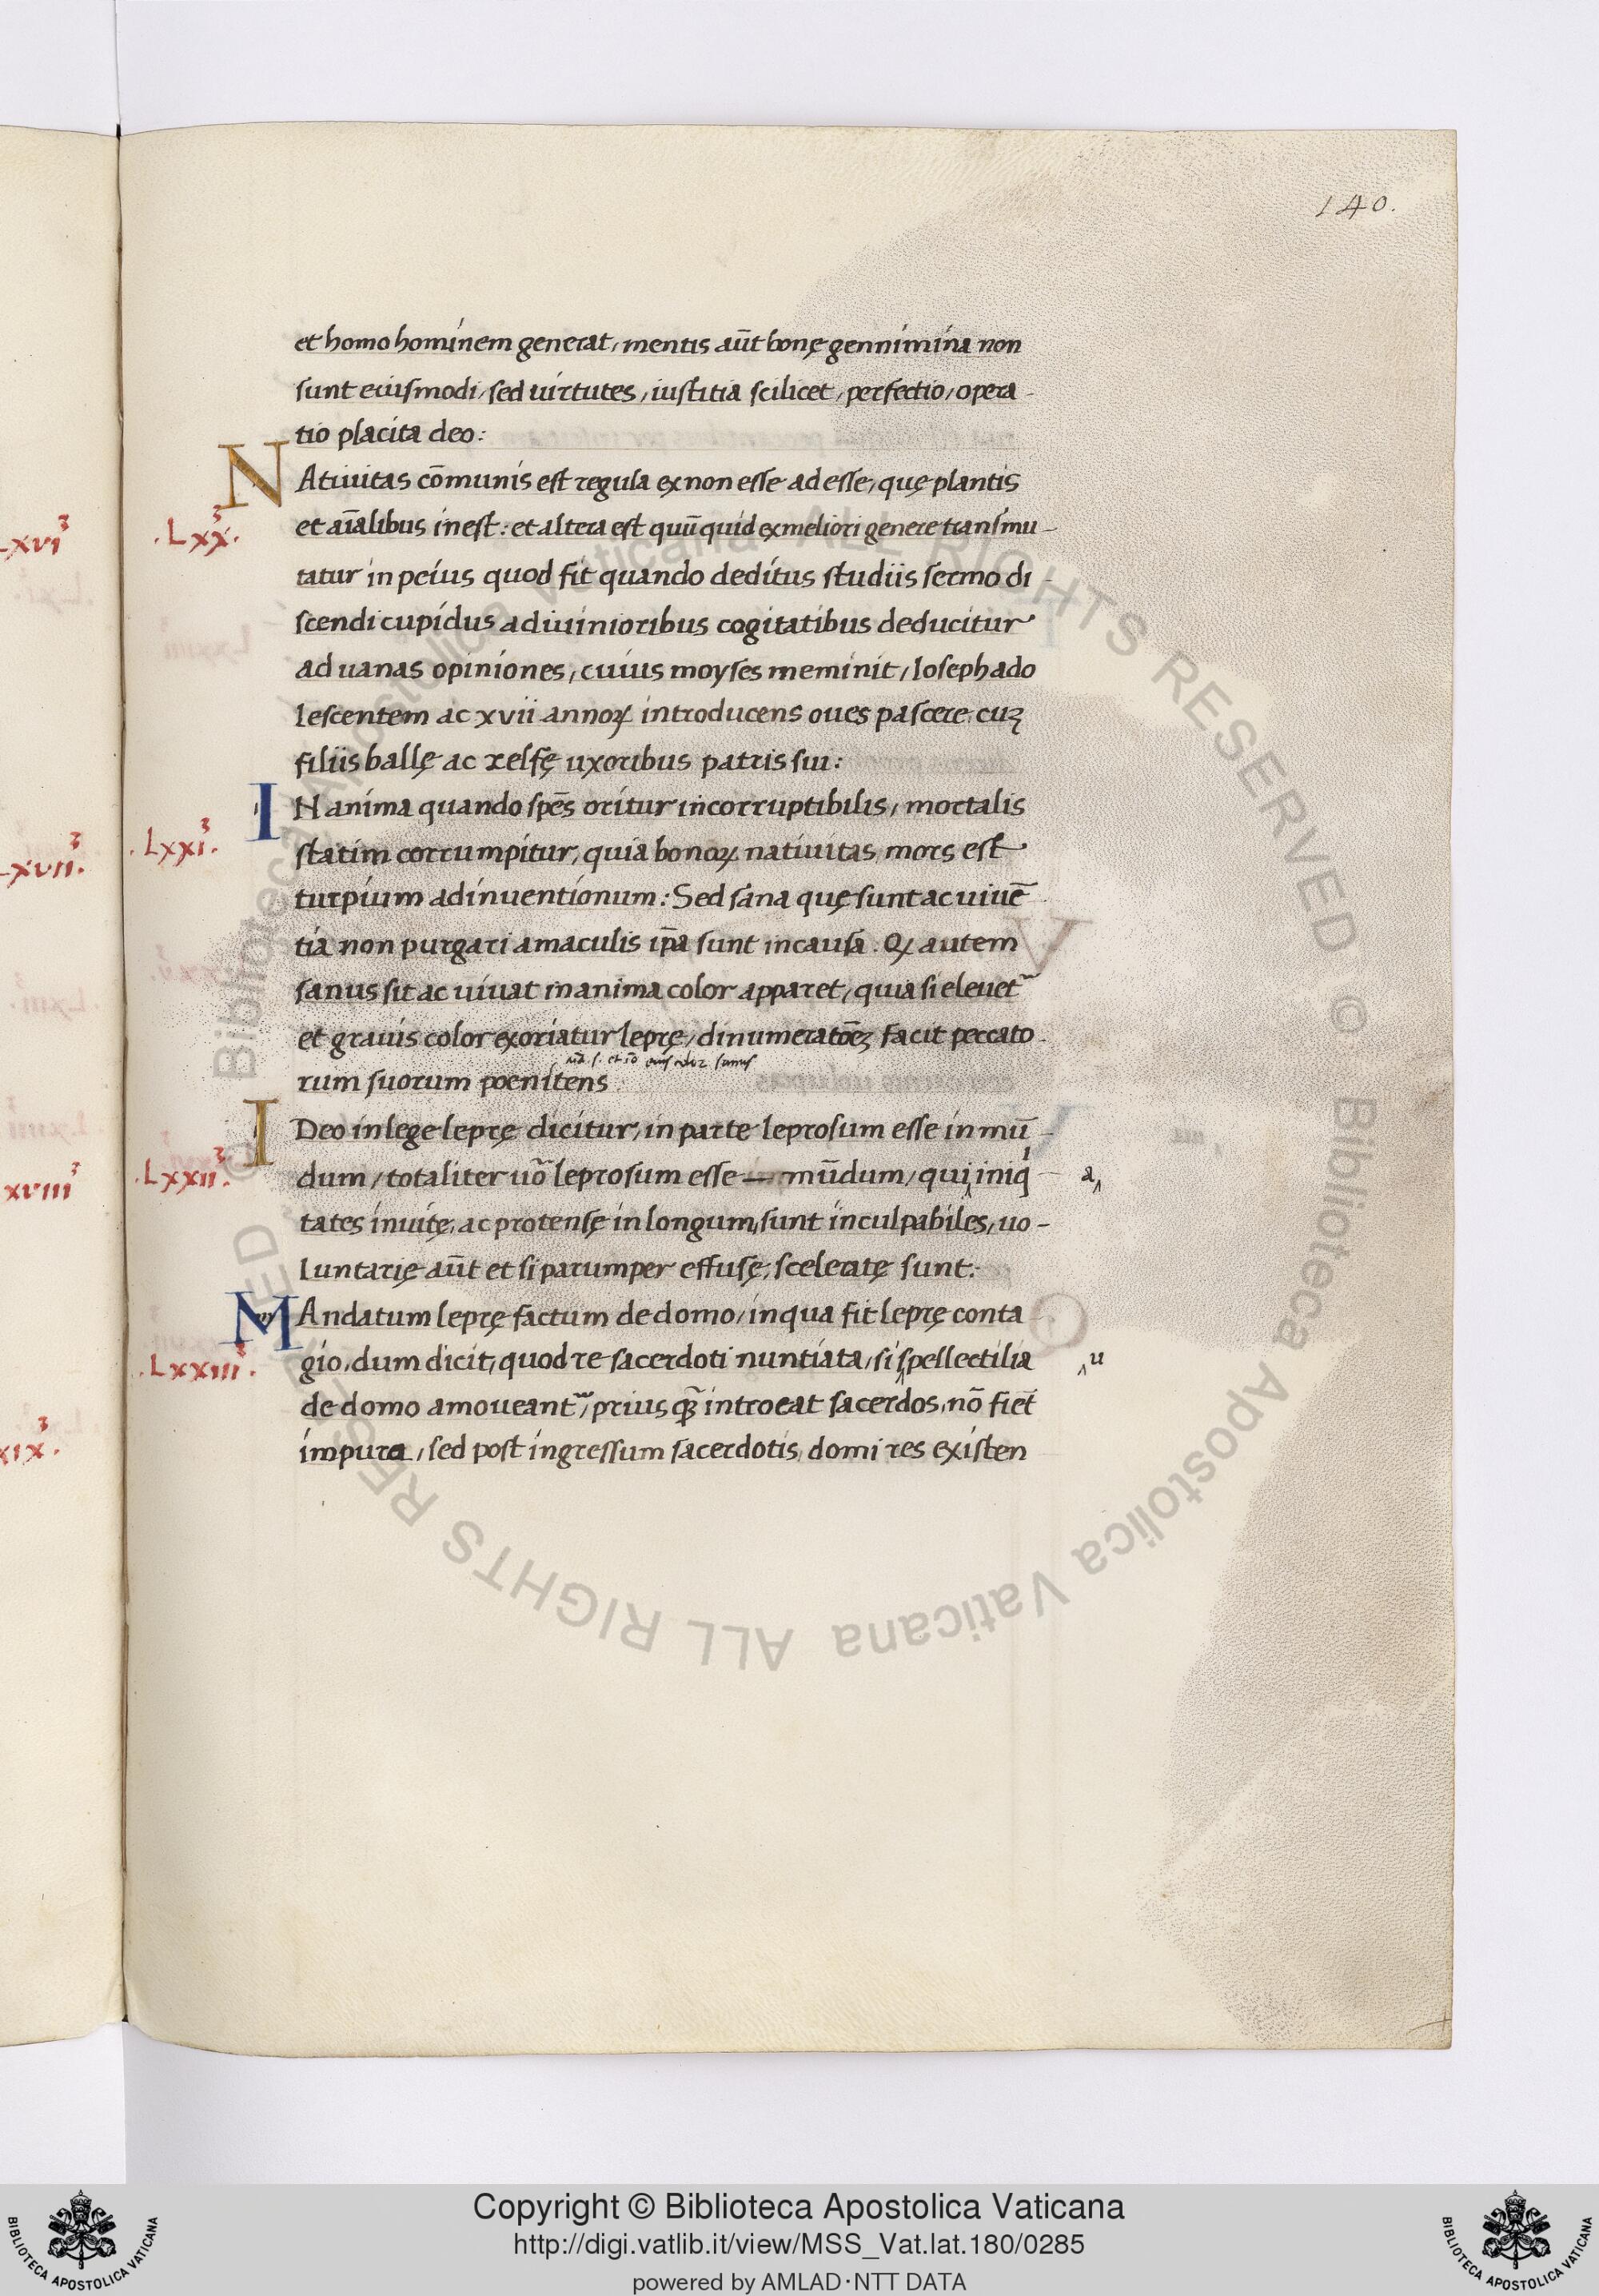 140.
et homo hominem generat, mentis aūt bonę gennimina non
sunt eiusmodi, sed uirtutes, iustitia scilicet, perfectio, opera-
tio placita deo:
NAtiuitas cōmunis est regula ex non esse ad esse, quę plantis
.Lxx.³ et aīalibus inest: et altera est quū quid ex meliori genere transmu-
tatur in peius quod fit quando deditus studiis sermo di-
scendi cupidus a diuinioribus cogitatibus deducitur
ad uanas opiniones, cuius moyses meminit, Ioseph ado
lescentem ac xvii annoꝝ introducens oues pascere cuʒ
filiis ballę ac zelfę uxoribus patris sui:
IN anima quando spēs oritur incorruptibilis, mortalis
.Lxxi.³ statim corrumpitur, quia bonoꝝ natiuitas mors est
turpium adinuentionum: Sed sana quę sunt ac uiuē
tia non purgari a maculis ip̄a sunt in causa. Qꝫ autem
sanus sit ac uiuat in anima color apparet, quia si eleuet̃
et grauis color exoriatur leprę, dinumeratōeʒ facit peccato-
rum suorum poenitens
IDeo in lege leprę dicitur, in parte leprosum esse inmū-
.Lxxii.³ dum, totaliter uo᷉ leprosum esse — mūdum, qui‸ iniq̍- a‸
tates inuitę, ac protensę in longum, sunt inculpabiles, uo-
luntarię aūt et si parumper effusę, sceleratę sunt:
MAndatum leprę factum de domo, in qua fit leprę conta-
.Lxxiii.³ gio, dum dicit, quod re sacerdoti nuntiata, si s‸pellectilia ‸u
de domo amoueant᷉, prius q̃ introeat sacerdos, nō fiet
impura, sed post ingressum sacerdotis, domi res existen
-xvi³
-xvii.³
xviii³
xix.³
Biblioteca Apostolica Vaticana ALL RIGHTS RESERVED © Biblioteca Apostolica Vaticana ALL RIGHTS RESERVED ©
Copyright © Biblioteca Apostolica Vaticana
http://digi.vatlib.it/view/MSS_Vat.lat.180/0285
powered by AMLAD·NTT DATA
BIBLIOTECA APOSTOLICA VATICANA
BIBLIOTECA APOSTOLICA VATICANA